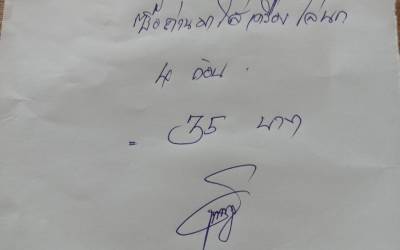 ซื้อถ่านมาใส่เครื่องไล่นก
4 ก้อน.
= 35 บาท